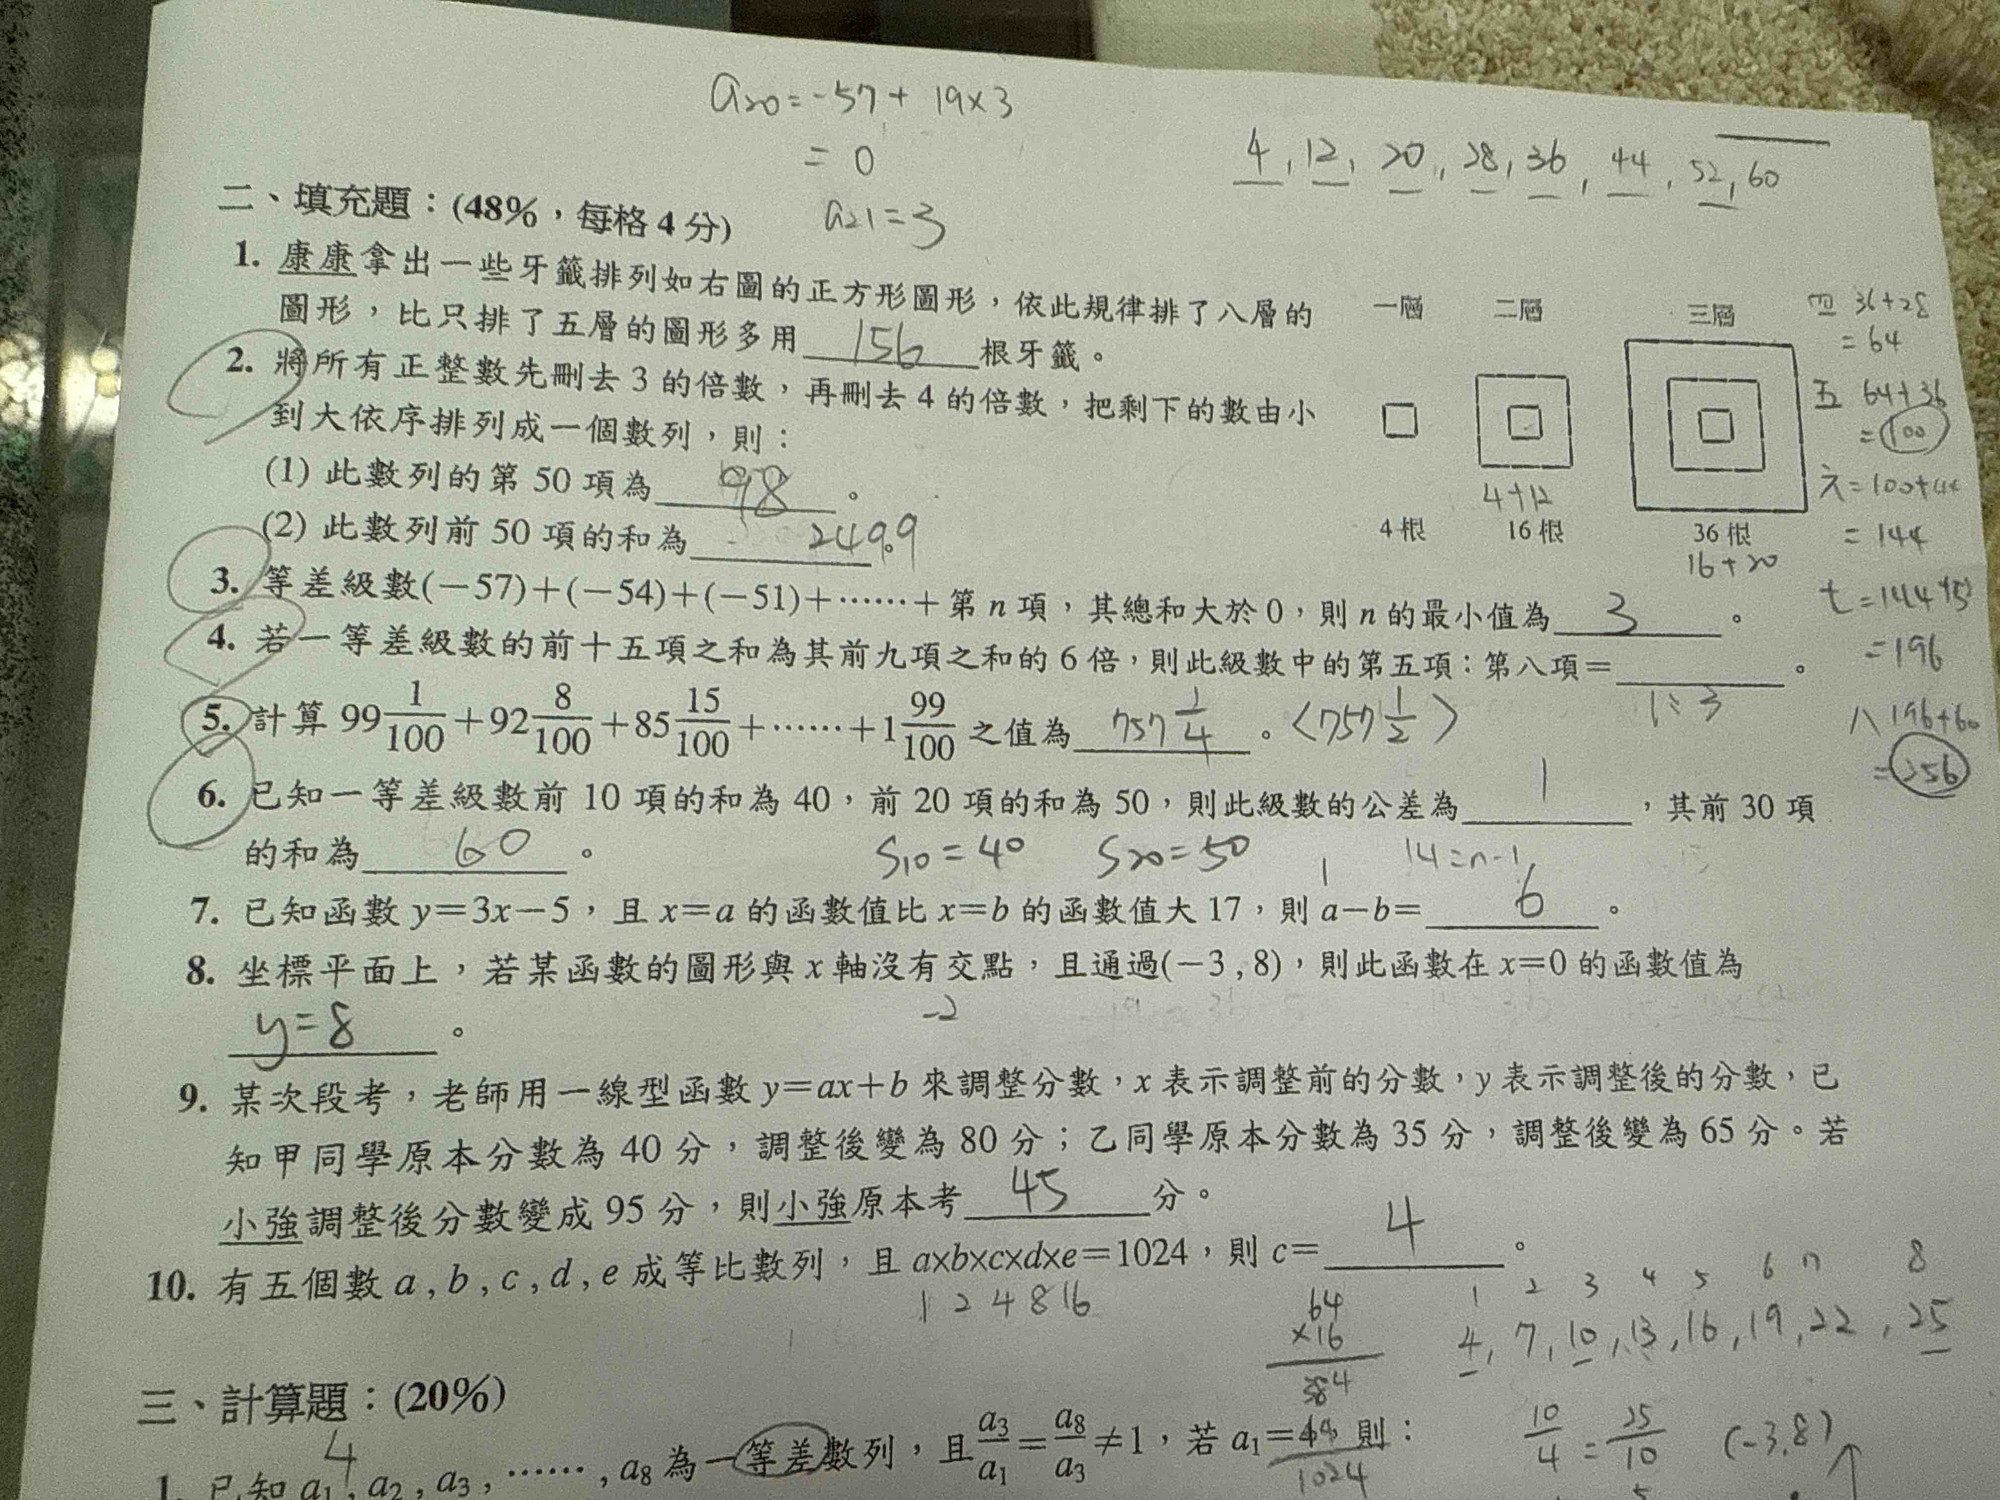 a₂₀=-57+19×3
=0
a₂₁=3
4, 12, 20, 28, 36, 44, 52, 60
二、填充題：(48%，每格4分)
1. 康康拿出一些牙籤排列如右圖的正方形圖形，依此規律排了八層的
圖形，比只排了五層的圖形多用 156 根牙籤。
一層 二層 三層
4+12
4根 16根 36根
16+20
四 36+28
=64
五 64+36
=100
六=100+44
=144
七=144+52
=196
八 196+60
=256
2. 將所有正整數先刪去3的倍數，再刪去4的倍數，把剩下的數由小
到大依序排列成一個數列，則：
(1) 此數列的第50項為 98 。
(2) 此數列前50項的和為 2499 。
3. 等差級數(－57)＋(－54)＋(－51)＋……＋第n項，其總和大於0，則n的最小值為 3 。
4. 若一等差級數的前十五項之和為其前九項之和的6倍，則此級數中的第五項：第八項＝ 。
1:3
5. 計算 99 1/100＋92 8/100＋85 15/100＋……＋1 99/100 之值為 757 1/4 。〈757 1/2〉
6. 已知一等差級數前10項的和為40，前20項的和為50，則此級數的公差為 1 ，其前30項
的和為 60 。
S₁₀=40 S₂₀=50 14=n-1
7. 已知函數y＝3x－5，且x＝a的函數值比x＝b的函數值大17，則a－b＝ 6 。
8. 坐標平面上，若某函數的圖形與x軸沒有交點，且通過(－3 , 8)，則此函數在x＝0的函數值為
y=8 。
-2
9. 某次段考，老師用一線型函數y＝ax＋b來調整分數，x表示調整前的分數，y表示調整後的分數，已
知甲同學原本分數為40分，調整後變為80分；乙同學原本分數為35分，調整後變為65分。若
小強調整後分數變成95分，則小強原本考 45 分。
10. 有五個數a , b , c , d , e成等比數列，且a×b×c×d×e＝1024，則c＝ 4 。
1 2 4 8 16
64
×16
384
64
1024
1 2 3 4 5 6 7 8
4, 7, 10, 13, 16, 19, 22, 25
三、計算題：(20%)
4
1. 已知a₁, a₂, a₃, ……, a₈為一等差數列，且a₃/a₁＝a₈/a₃≠1，若a₁＝4，則：
10/4=25/10
(-3,8)